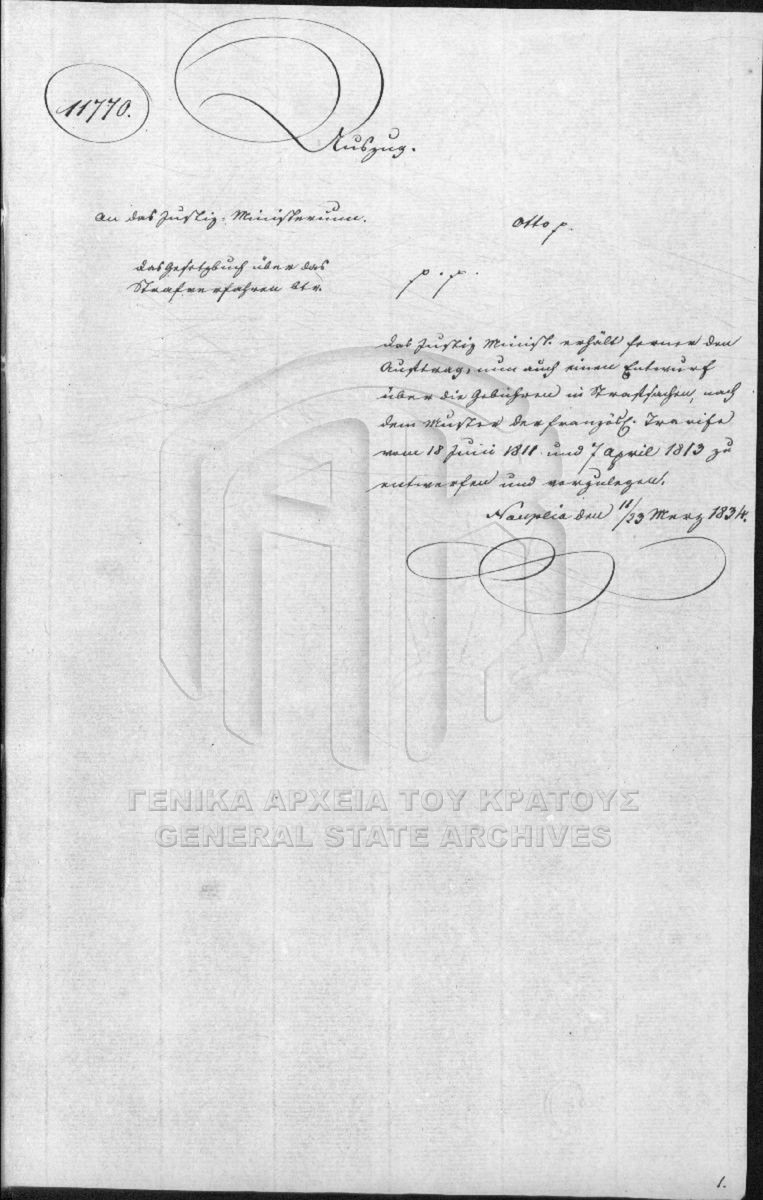 11770.
Auszug.
An das Justiz-Ministerium.
Otto p.
das Gesetzbuch über das
Strafverfahren btr.
p. p.
das Justiz Minist. erhält ferner den
Auftrag, nun auch einen Entwurf
über die Gebühren in Strafsachen, nach
dem Muster der französ. Tarife
vom 18 Juni 1811 und 7 April 1813 zu
entwerfen und vorzulegen.
Nauplia den 11/23 Merz 1834.
ΓΕΝΙΚΑ ΑΡΧΕΙΑ ΤΟΥ ΚΡΑΤΟΥΣ
GENERAL STATE ARCHIVES
1.